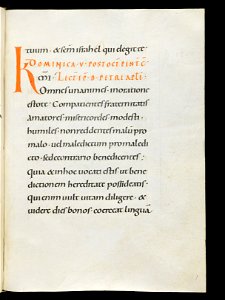 tuum · & sem istrahel qui degit te
DOMINICA · V · POST OCT PENTE
CM · LECTIO · B · PETRI APLI ·
Omnes unanimes · in oratione
estote · Compatientes fraternitatis
amatores · misericordes · modesti ·
humiles · non reddentes malū pro
malo · uel maledictum pro maledi
cto · sed e contrario benedicentes ;
quia & in hoc uocati estis ut bene
dictionem hereditate possideatis ·
qui enim uult uitam diligere · &
uidere dies bonos · coerceat linguā